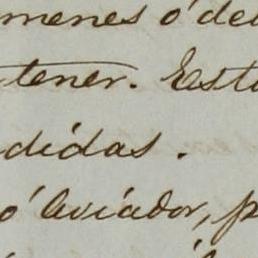 menes ó del
tener. Esta
didas.
ó Aviador, p